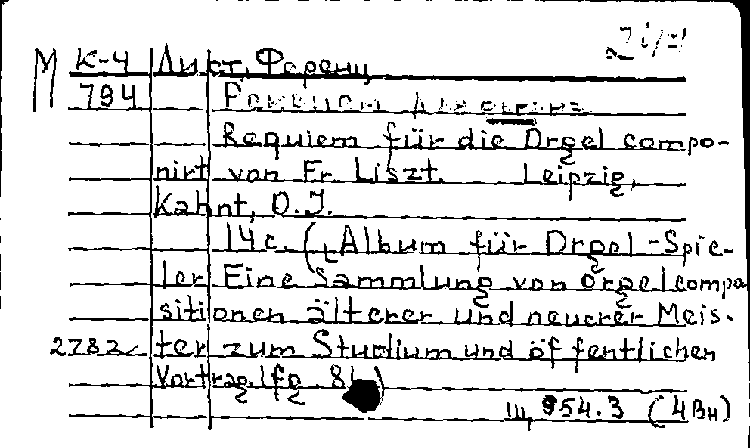 М К-4 Лист, Ференц
794
Requiem für die Orgel compo-
nirt von Fr. Liszt. Leipzig,
Kahnt, O.J.
14 с. („Album für Orgel-Spie-
ler Eine Sammlung von Orgelcompo
sitionen älterer und neuerer Meis-
2782 ter zum Studium und öffentlichen
Vortrag. lfg. 81)
Ш, 954.3 (4Вн)